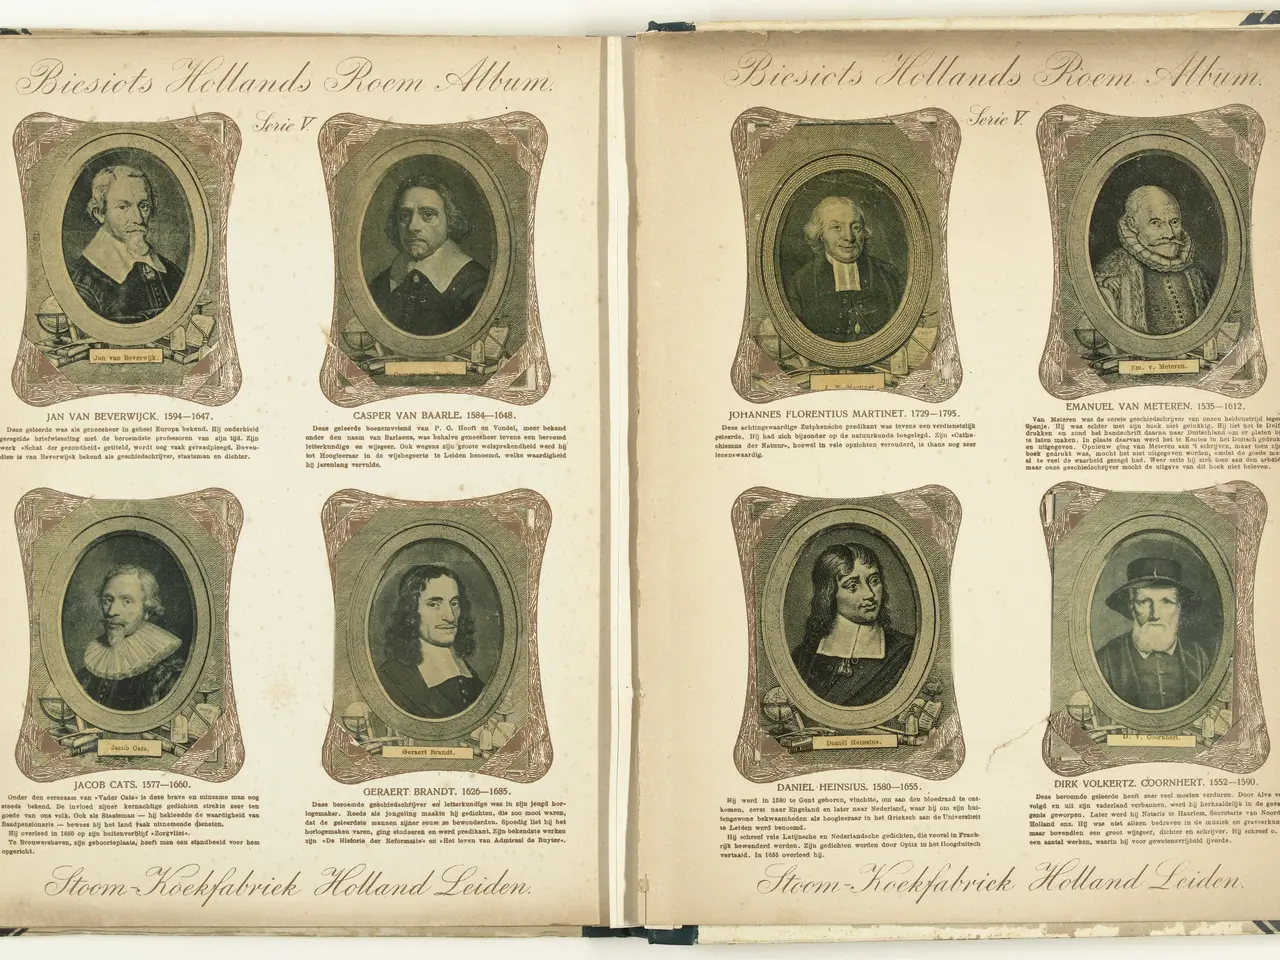 Biesiots Hollands Roem Album.
Serie V.
Jan van Beverwijk.
JAN VAN BEVERWIJCK. 1594—1647.
Deze geleerde was als geneesheer in geheel Europa bekend. Hij onderhield
geregelde briefwisseling met de beroemdste professoren van zijn tijd. Zijn
werk »Schat der gezondheid« getiteld, werd nog vaak geraadpleegd. Boven-
dien is van Beverwijck bekend als geschiedschrijver, staatsman en dichter.
CASPER VAN BAARLE. 1584—1648.
Deze geleerde boezemvriend van P. C. Hooft en Vondel, meer bekend
onder den naam van Barlaeus, was behalve geneesheer tevens een beroemd
letterkundige en wijsgeer. Ook wegens zijn groote welsprekendheid werd hij
tot Hoogleeraar in de wijsbegeerte te Leiden benoemd, welke waardigheid
hij jarenlang vervulde.
Jacob Cats.
JACOB CATS. 1577—1660.
Onder den eernaam van »Vader Cats« is deze brave en minzame man nog
steeds bekend. De invloed zijner kernachtige gedichten strekte zeer ten
goede van ons volk. Ook als Staatsman — hij bekleedde de waardigheid van
Raadpensionaris — bewees hij het land vaak uitnemende diensten.
Hij overleed in 1660 op zijn buitenverblijf »Zorgvliet«.
Te Brouwershaven, zijn geboorteplaats, heeft men een standbeeld voor hem
opgericht.
Geraert Brandt.
GERAERT BRANDT. 1626—1685.
Deze beroemde geschiedschrijver en letterkundige was in zijn jeugd hor-
logemaker. Reeds als jongeling maakte hij gedichten, die zoo mooi waren,
dat de geleerdste mannen zijner eeuw ze bewonderden. Spoedig liet hij het
horlogemaken varen, ging studeeren en werd predikant. Zijn bekendste werken
zijn »De Historie der Reformatie« en »Het leven van Admiraal de Ruyter«.
Stoom-Koekfabriek Holland Leiden.
Biesiots Hollands Roem Album.
Serie V.
JOHANNES FLORENTIUS MARTINET. 1729—1795.
Deze achtingswaardige Zutphensche predikant was tevens een verdienstelijk
geleerde. Hij had zich bijzonder op de natuurkunde toegelegd. Zijn »Cathe-
chismus der Natuur«, hoewel in vele opzichten verouderd, is thans nog zeer
lezenswaardig.
Em. v. Meteren.
EMANUEL VAN METEREN. 1535—1612.
Van Meteren was de eerste geschiedschrijver van onzen heldenstrijd tegen
Spanje. Hij was echter met zijn boek niet gelukkig. Hij liet het te Delf
drukken en zond het handschrift daarna naar Duitschland om er platen bij
te laten maken. In plaats daarvan werd het te Keulen in het Duitsch gedrukt
en uitgegeven. Opnieuw ging van Meteren aan 't schrijven, maar toen zijn
boek gedrukt was, mocht het niet uitgegeven worden, omdat de goede man
al te veel de waarheid gezegd had. Weer zette hij zich toen aan den arbeid
maar onze geschiedschrijver mocht de uitgave van dit boek niet beleven.
Daniël Heinsius.
DANIEL HEINSIUS. 1580—1655.
Hij werd in 1580 te Gent geboren, vluchtte, om aan den bloedraad te ont-
komen, eerst naar Engeland en later naar Nederland, waar hij om zijn bui-
tengewone bekwaamheden als hoogleeraar in het Grieksch aan de Universiteit
te Leiden werd benoemd.
Hij schreef vele Latijnsche en Nederlandsche gedichten, die vooral in Frank-
rijk bewonderd werden. Zijn gedichten werden door Opitz in het Hoogduitsch
vertaald. In 1655 overleed hij.
D. v. Coornhert.
DIRK VOLKERTZ. COORNHERT. 1552—1590.
Deze beroemde geleerde heeft zeer veel moeten verduren. Door Alva ve
volgd en uit zijn vaderland verbannen, werd hij herhaaldelijk in de geva
genis geworpen. Later werd hij Notaris te Haarlem, Secretaris van Noord
Holland enz. Hij was niet alleen bedreven in de muziek en graveerkun
maar bovendien een groot wijsgeer, dichter en schrijver. Hij schreef o.
een aantal werken, waarin hij voor gewetensvrijheid ijverde.
Stoom-Koekfabriek Holland Leiden.